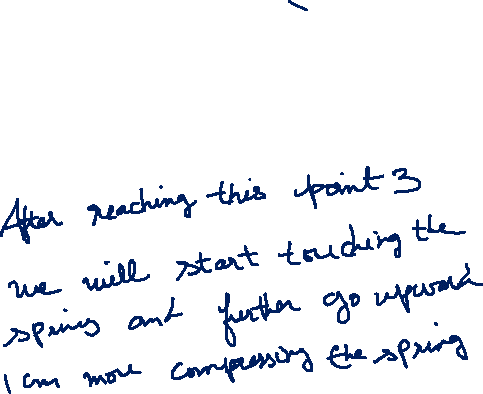 After reaching this point 3
we will start touching the
spring and further go upward
1 cm more compressing the spring